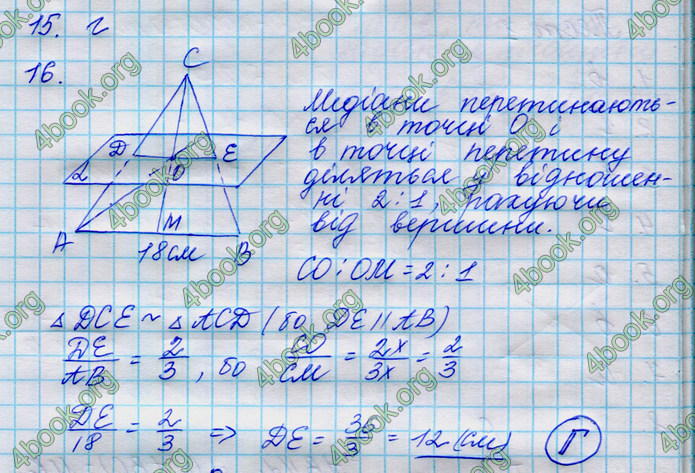 15. г
16.
C
D
E
α
O
A
M
B
18 см
Медіани перетинають-
ся в точці O і
в точці перетину
діляться у відношен-
ні 2:1, рахуючи
від вершини.
CO : OM = 2 : 1
△ DCE ~ △ ACD (бо DE || AB)
DE/AB = 2/3, бо CO/CM = 2x/3x = 2/3
DE/18 = 2/3 => DE = 36/3 = 12 (см)
Г
4book.org